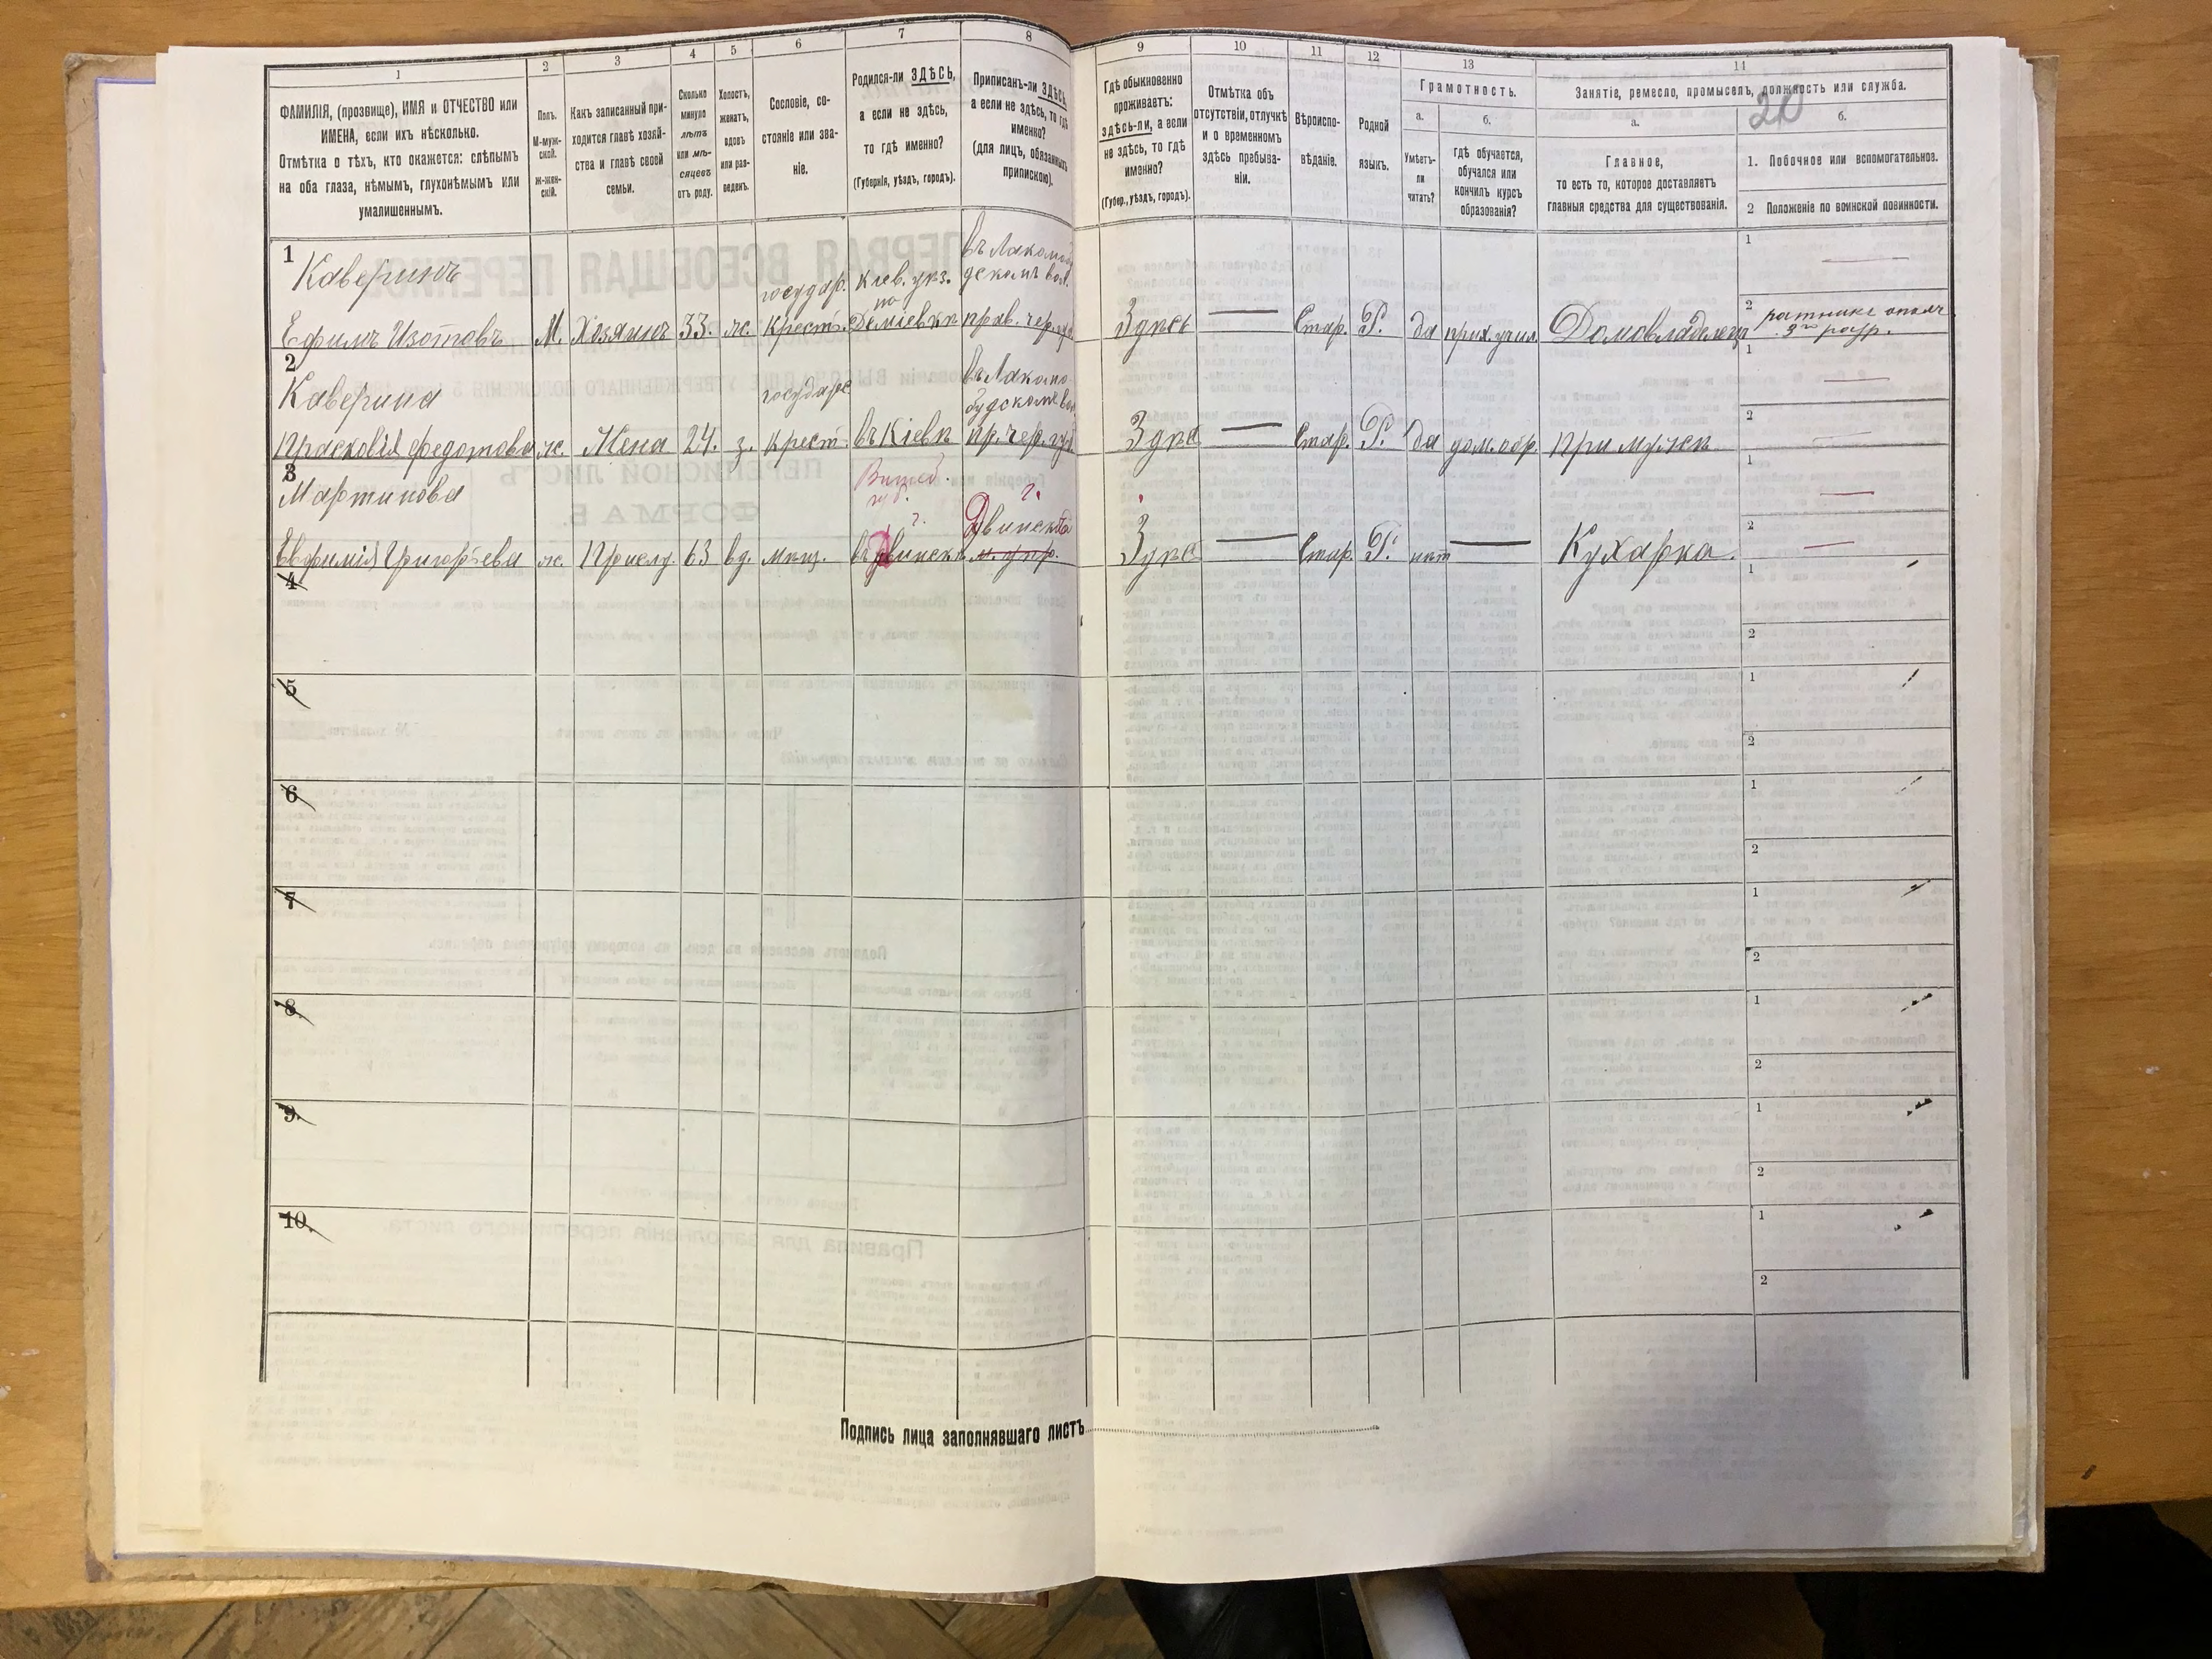 1
2
3
4
5
6
7
8
9
10
11
12
13
14
ФАМИЛІЯ, (прозвище), ИМЯ и ОТЧЕСТВО или
ИМЕНА, если ихъ нѣсколько.
Отмѣтка о тѣхъ, кто окажется: слѣпымъ
на оба глаза, нѣмымъ, глухонѣмымъ или
умалишеннымъ.
Полъ.
М-муж-
ской.
ж-жен-
скій.
Какъ записанный при-
ходится главѣ хозяй-
ства и главѣ своей
семьи.
Сколько
минуло
лѣтъ
или мѣ-
сяцевъ
отъ роду.
Холостъ,
женатъ,
вдовъ
или раз-
веденъ.
Сословіе, со-
стояніе или зва-
ніе.
Родился-ли ЗДѢСЬ,
а если не здѣсь,
то гдѣ именно?
(Губернія, уѣздъ, городъ).
Приписанъ-ли ЗДѢСЬ,
а если не здѣсь, то гдѣ
именно?
(для лицъ, обязанныхъ
припискою).
Гдѣ обыкновенно
проживаетъ:
здѣсь-ли, а если
не здѣсь, то гдѣ
именно?
(Губер., уѣздъ, городъ).
Отмѣтка объ
отсутствіи, отлучкѣ
и о временномъ
здѣсь пребыва-
ніи.
Вѣроиспо-
вѣданіе.
Родной
языкъ.
Грамотность.
а.
Умѣетъ-
ли
читать?
б.
гдѣ обучается,
обучался или
кончилъ курсъ
образованія?
Занятіе, ремесло, промыселъ, должность или служба.
20
а.
Главное,
то есть то, которое доставляетъ
главныя средства для существованія.
б.
1. Побочное или вспомогательное.
2 Положеніе по воинской повинности.
1
Каверинъ
Ефимъ Изотовъ
М.
Хозяинъ
33.
ж.
государ.
крест.
Кіев. уѣз.
на
Деміевкѣ
Здѣсь
Стар.
Р.
да
прих. учил.
Домовладелецъ
1
2
ратникъ ополч.
2го разр.
2
Каверина
Прасковія Федотова
ж.
Жена
24.
з.
государс
крест.
въ Кіевѣ
Здѣс
Стар.
Р.
да
дом. обр.
При мужѣ
1
2
3
Мартинова
Евфимія Григорьева
ж.
Прислу.
63
вд.
мѣщ.
Витеб.
губ.
г.
въ Двинскѣ
г.
Здѣс
Стар.
Р.
нѣт
Кухарка.
1
2
4
1
2
5
1
2
6
1
2
7
1
2
8
1
2
9
1
2
10
1
2
Подпись лица заполнявшаго листъ